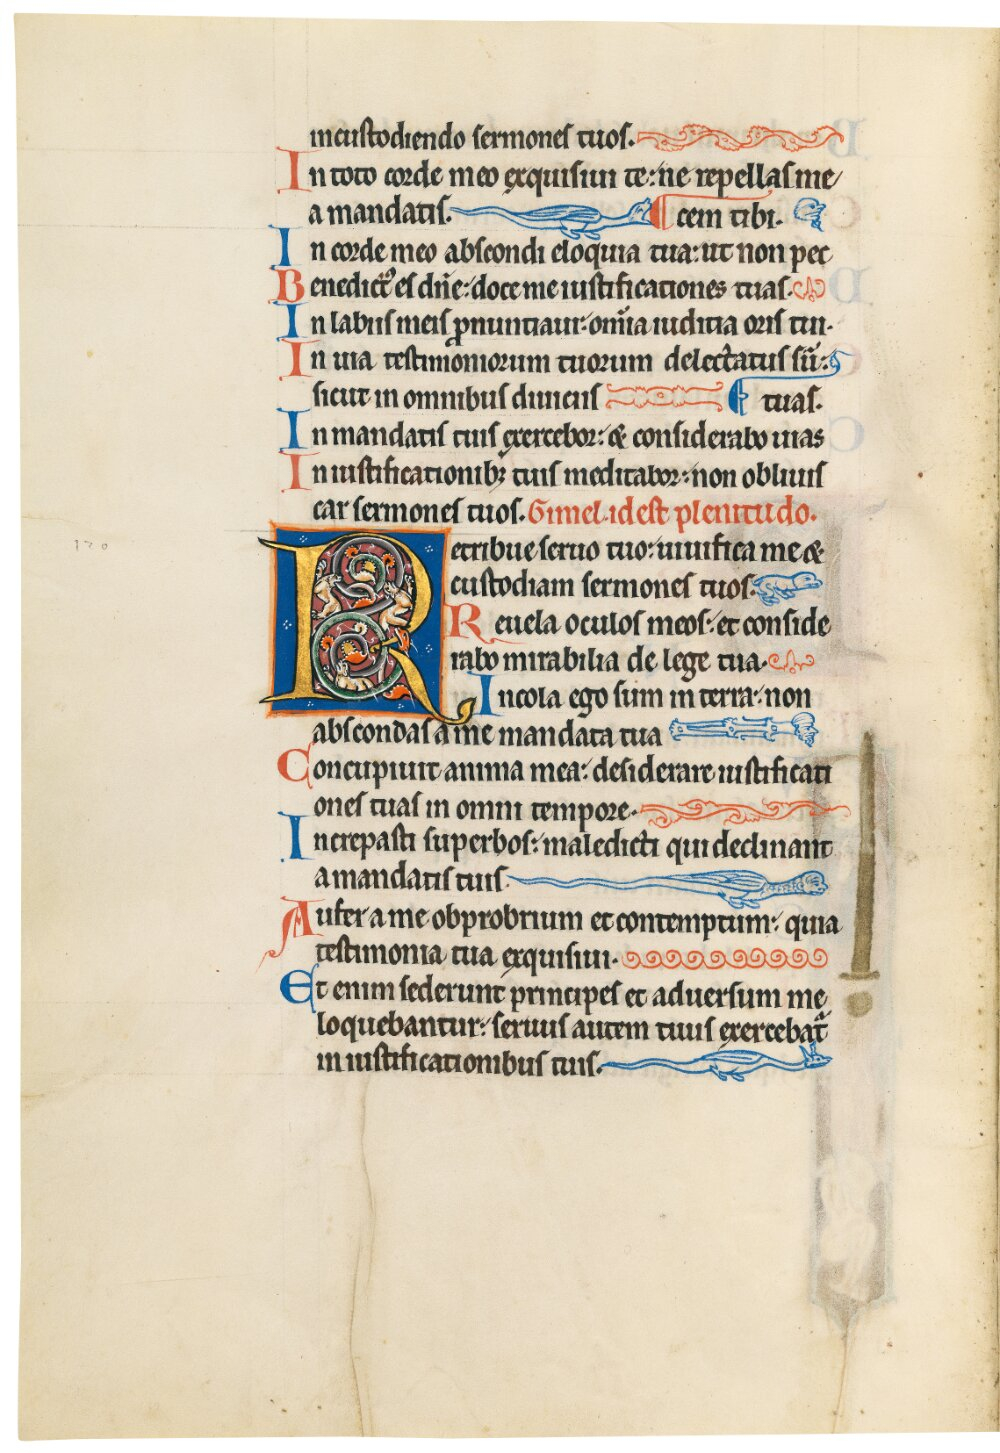 incustodiendo sermones tuos.
In toto corde meo exquisiui te: ne repellas me
a mandatis. cem tibi.
In corde meo abscondi eloquia tua: ut non pec
Benedict' es dñe: doce me iustificationes tuas.
In labiis meis ꝓnuntiaui: om̄ia iuditia oris tui.
In uia testimoniorum tuorum delectatus sū:
sicut in omnibus diuiciis tuas.
In mandatis tuis exercebor: & considerabo uias
In iustificationibꝫ tuis meditabor: non obliuis
car sermones tuos. Gimel. id est plenitudo.
Retribue seruo tuo: uiuifica me &
custodiam sermones tuos.
Reuela oculos meos: et conside
rabo mirabilia de lege tua.
Incola ego sum in terra: non
abscondas a me mandata tua
Concupiuit anima mea: desiderare iustificati
ones tuas in omni tempore.
Increpasti superbos: maledicti qui declinant
a mandatis tuis.
Aufer a me obprobrium et contemptum: quia
testimonia tua exquisiui.
Et enim sederunt principes et aduersum me
loquebantur: seruus autem tuus exercebat̄
in iustificationibus tuis.